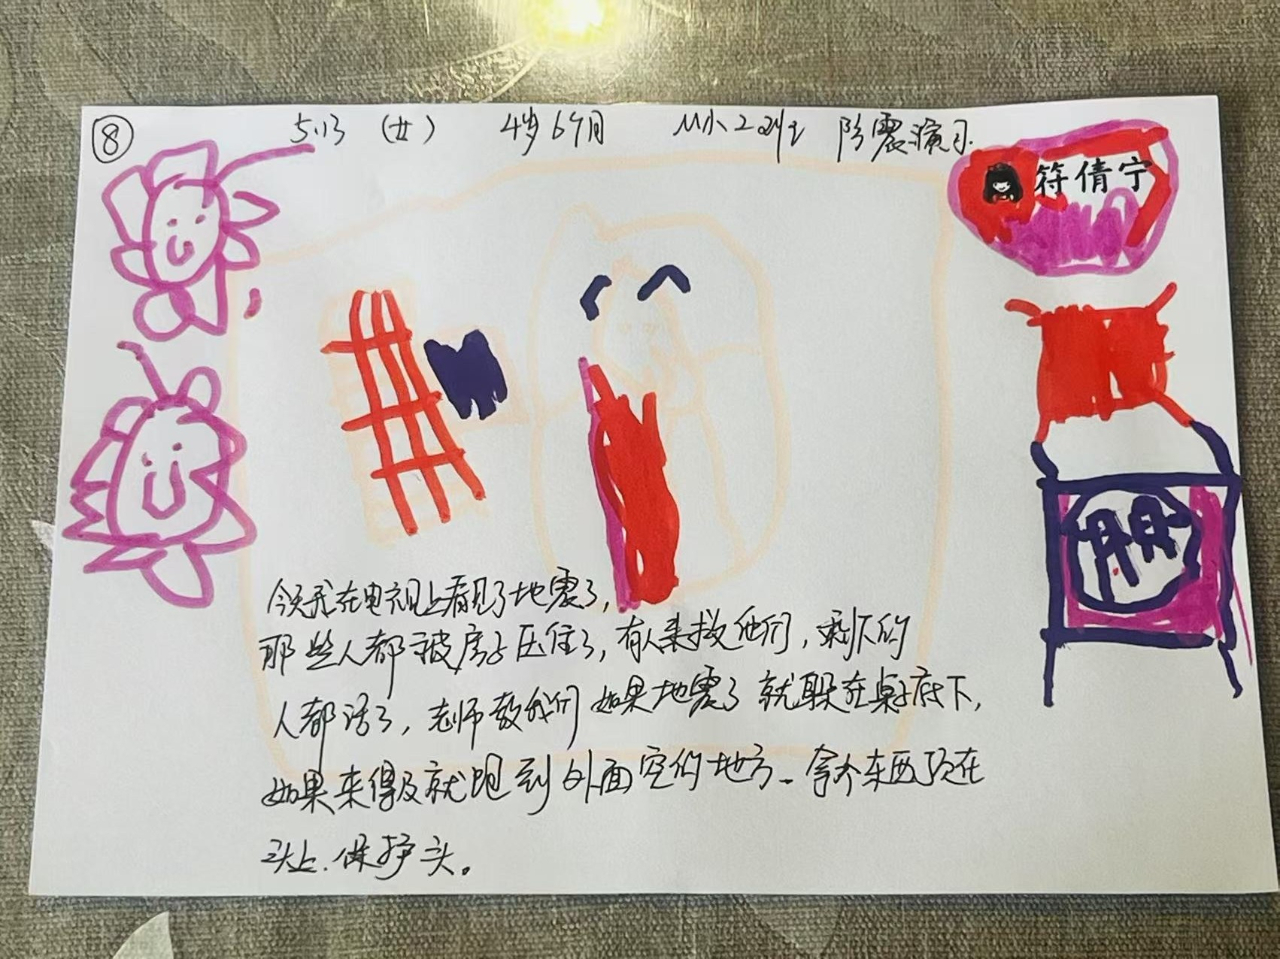 ⑧ 5.13 (女) 4岁6个月 M小2班 防震演习
符倩宁
今天我在电视上看见了地震了，
那些人都被房子压住了，有人来救他们，剩下的
人都活了，老师教我们如果地震了就躲在桌子底下，
如果来得及就跑到外面空的地方、拿个东西顶在
头上、保护头。